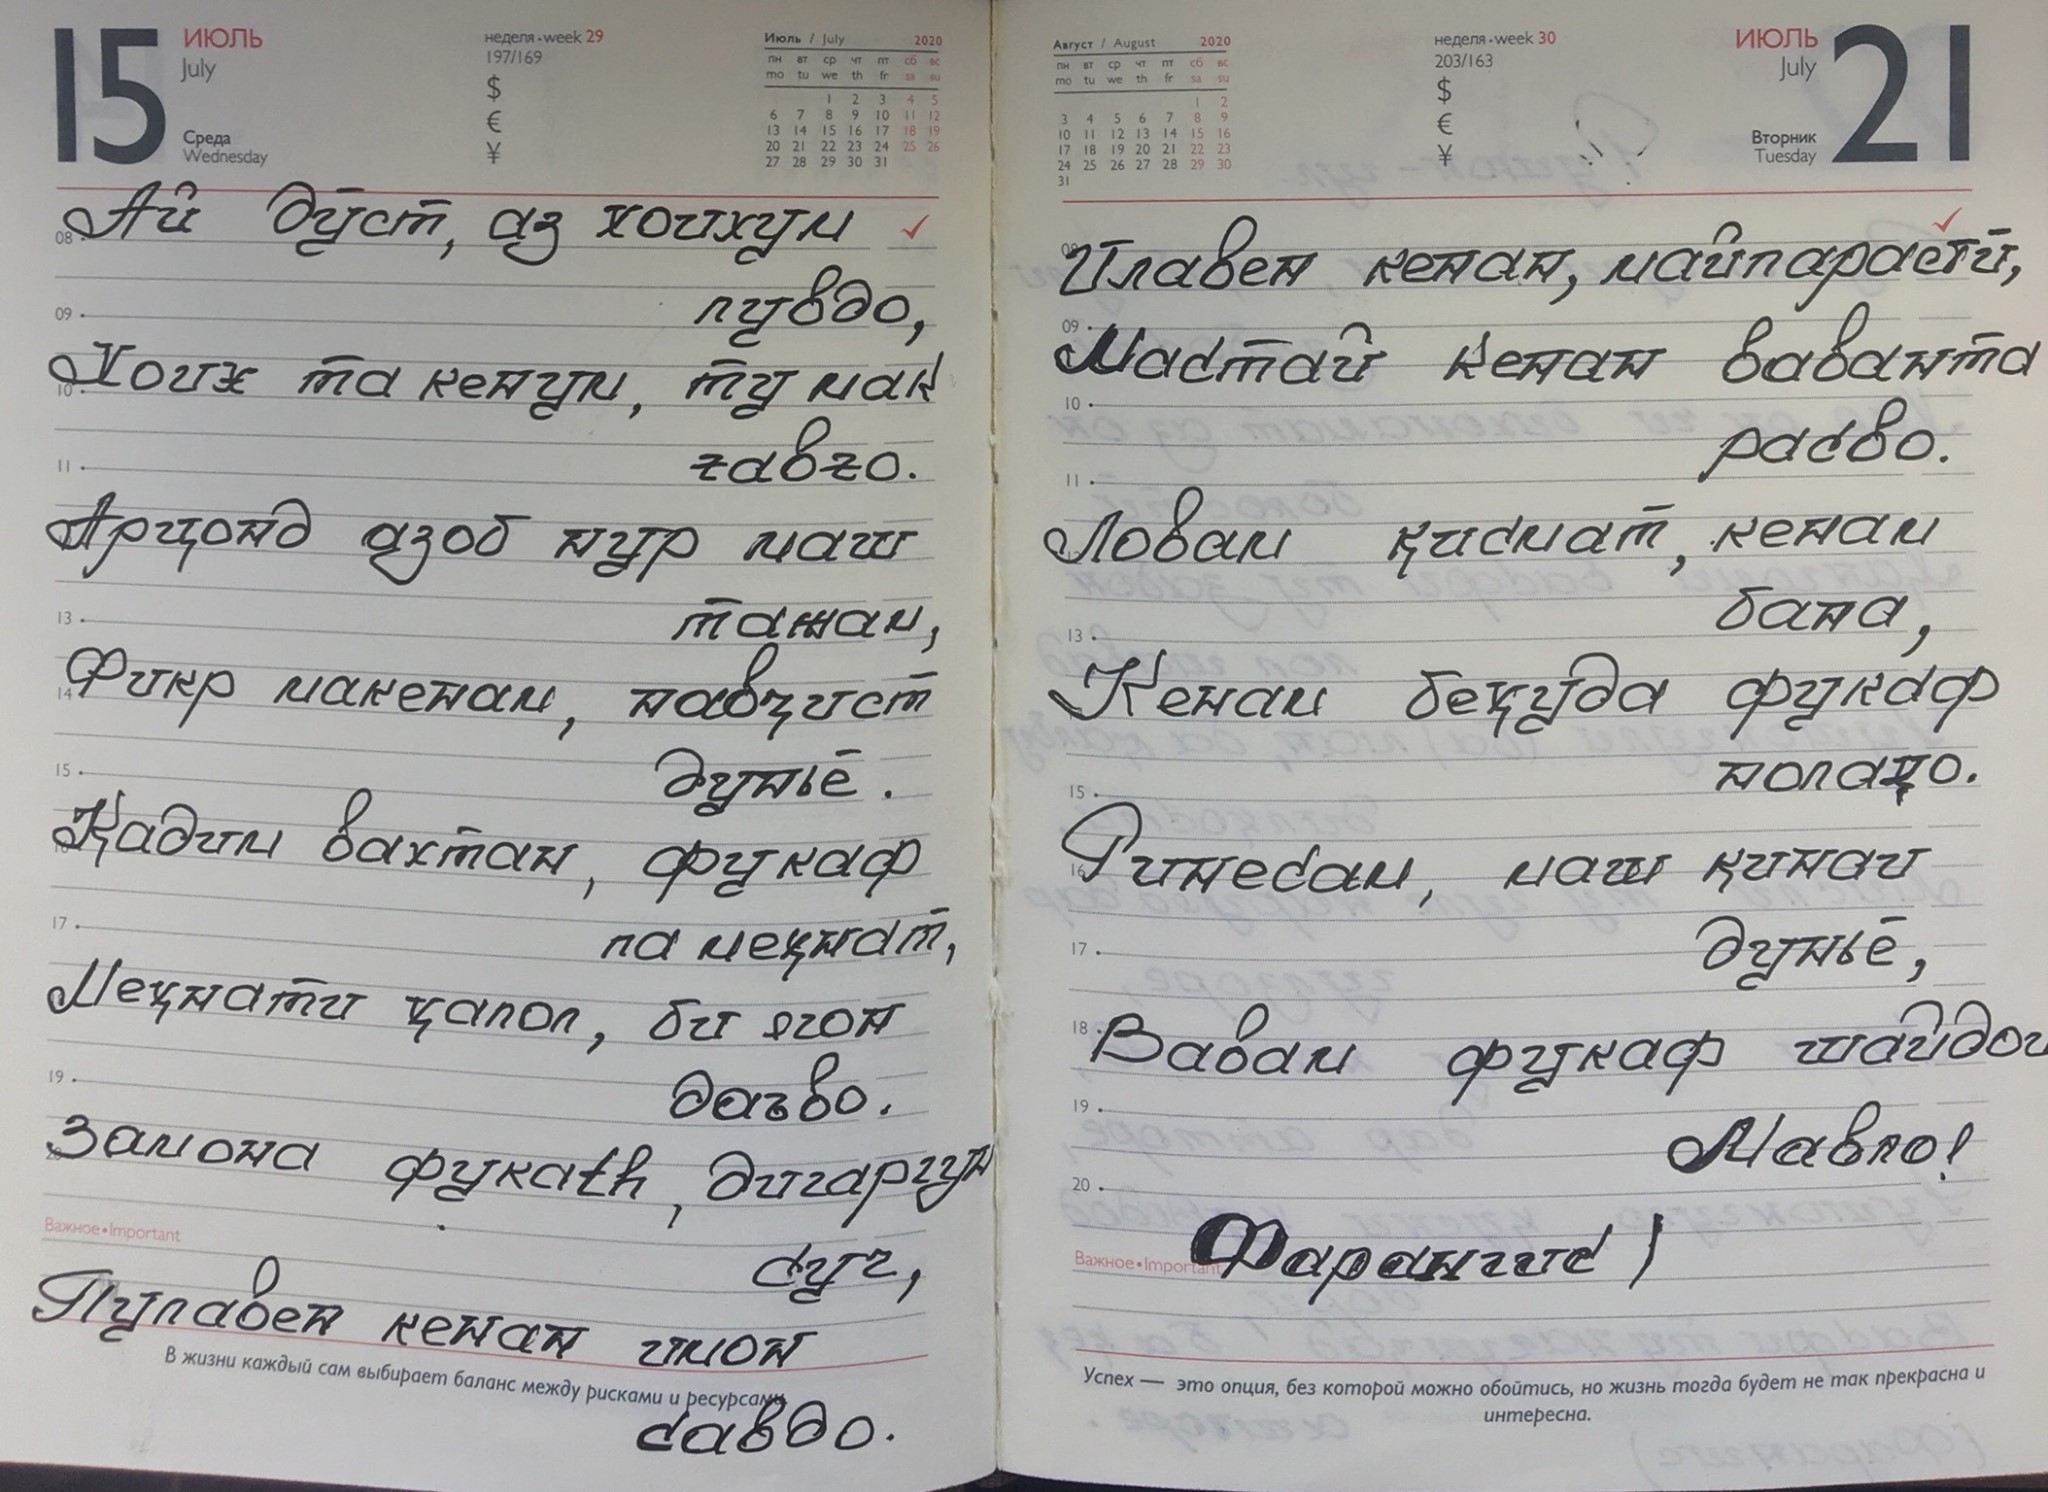 15
ИЮЛЬ
July
Среда
Wednesday
неделя • week 29
197/169
$
€
¥
Июль / July 2020
пн вт ср чт пт сб вс
mo tu we th fr sa su
1 2 3 4 5
6 7 8 9 10 11 12
13 14 15 16 17 18 19
20 21 22 23 24 25 26
27 28 29 30 31
08
Ай дӯст, аз хоихум
пувдо,
09
Хоиж та кенум, ту мак
10
zавzо.
11
Арҷонд азоб нур маш
тажам,
13
Фикр макенам, навҷист
14
дунъё.
15
Қадим вахтан, фукаф
па меҳнат,
17
Меҳнати ҳалол, би ягон
даъво.
19
Замона фукаth, дигаргун
суг,
Важное • Important
Пулавен кенан имон
В жизни каждый сам выбирает баланс между рисками и ресурсами
савдо.
Август / August 2020
пн вт ср чт пт сб вс
mo tu we th fr sa su
1 2
3 4 5 6 7 8 9
10 11 12 13 14 15 16
17 18 19 20 21 22 23
24 25 26 27 28 29 30
31
неделя • week 30
203/163
$
€
¥
ИЮЛЬ
July
Вторник
Tuesday
21
Илавен кенан, майпарастӣ,
09
Мастай кенан ваванта
10
расво.
11
Ловам қисмат, кенам
бана,
13
Кенам беҳуда фукаф
полаҷо.
15
Ғинесам, маш қинаи
16
дунъё,
17
18
Вавам фукаф шайдои
19
Мавло!
20
Фарангис)
Важное • Important
Успех — это опция, без которой можно обойтись, но жизнь тогда будет не так прекрасна и
интересна.